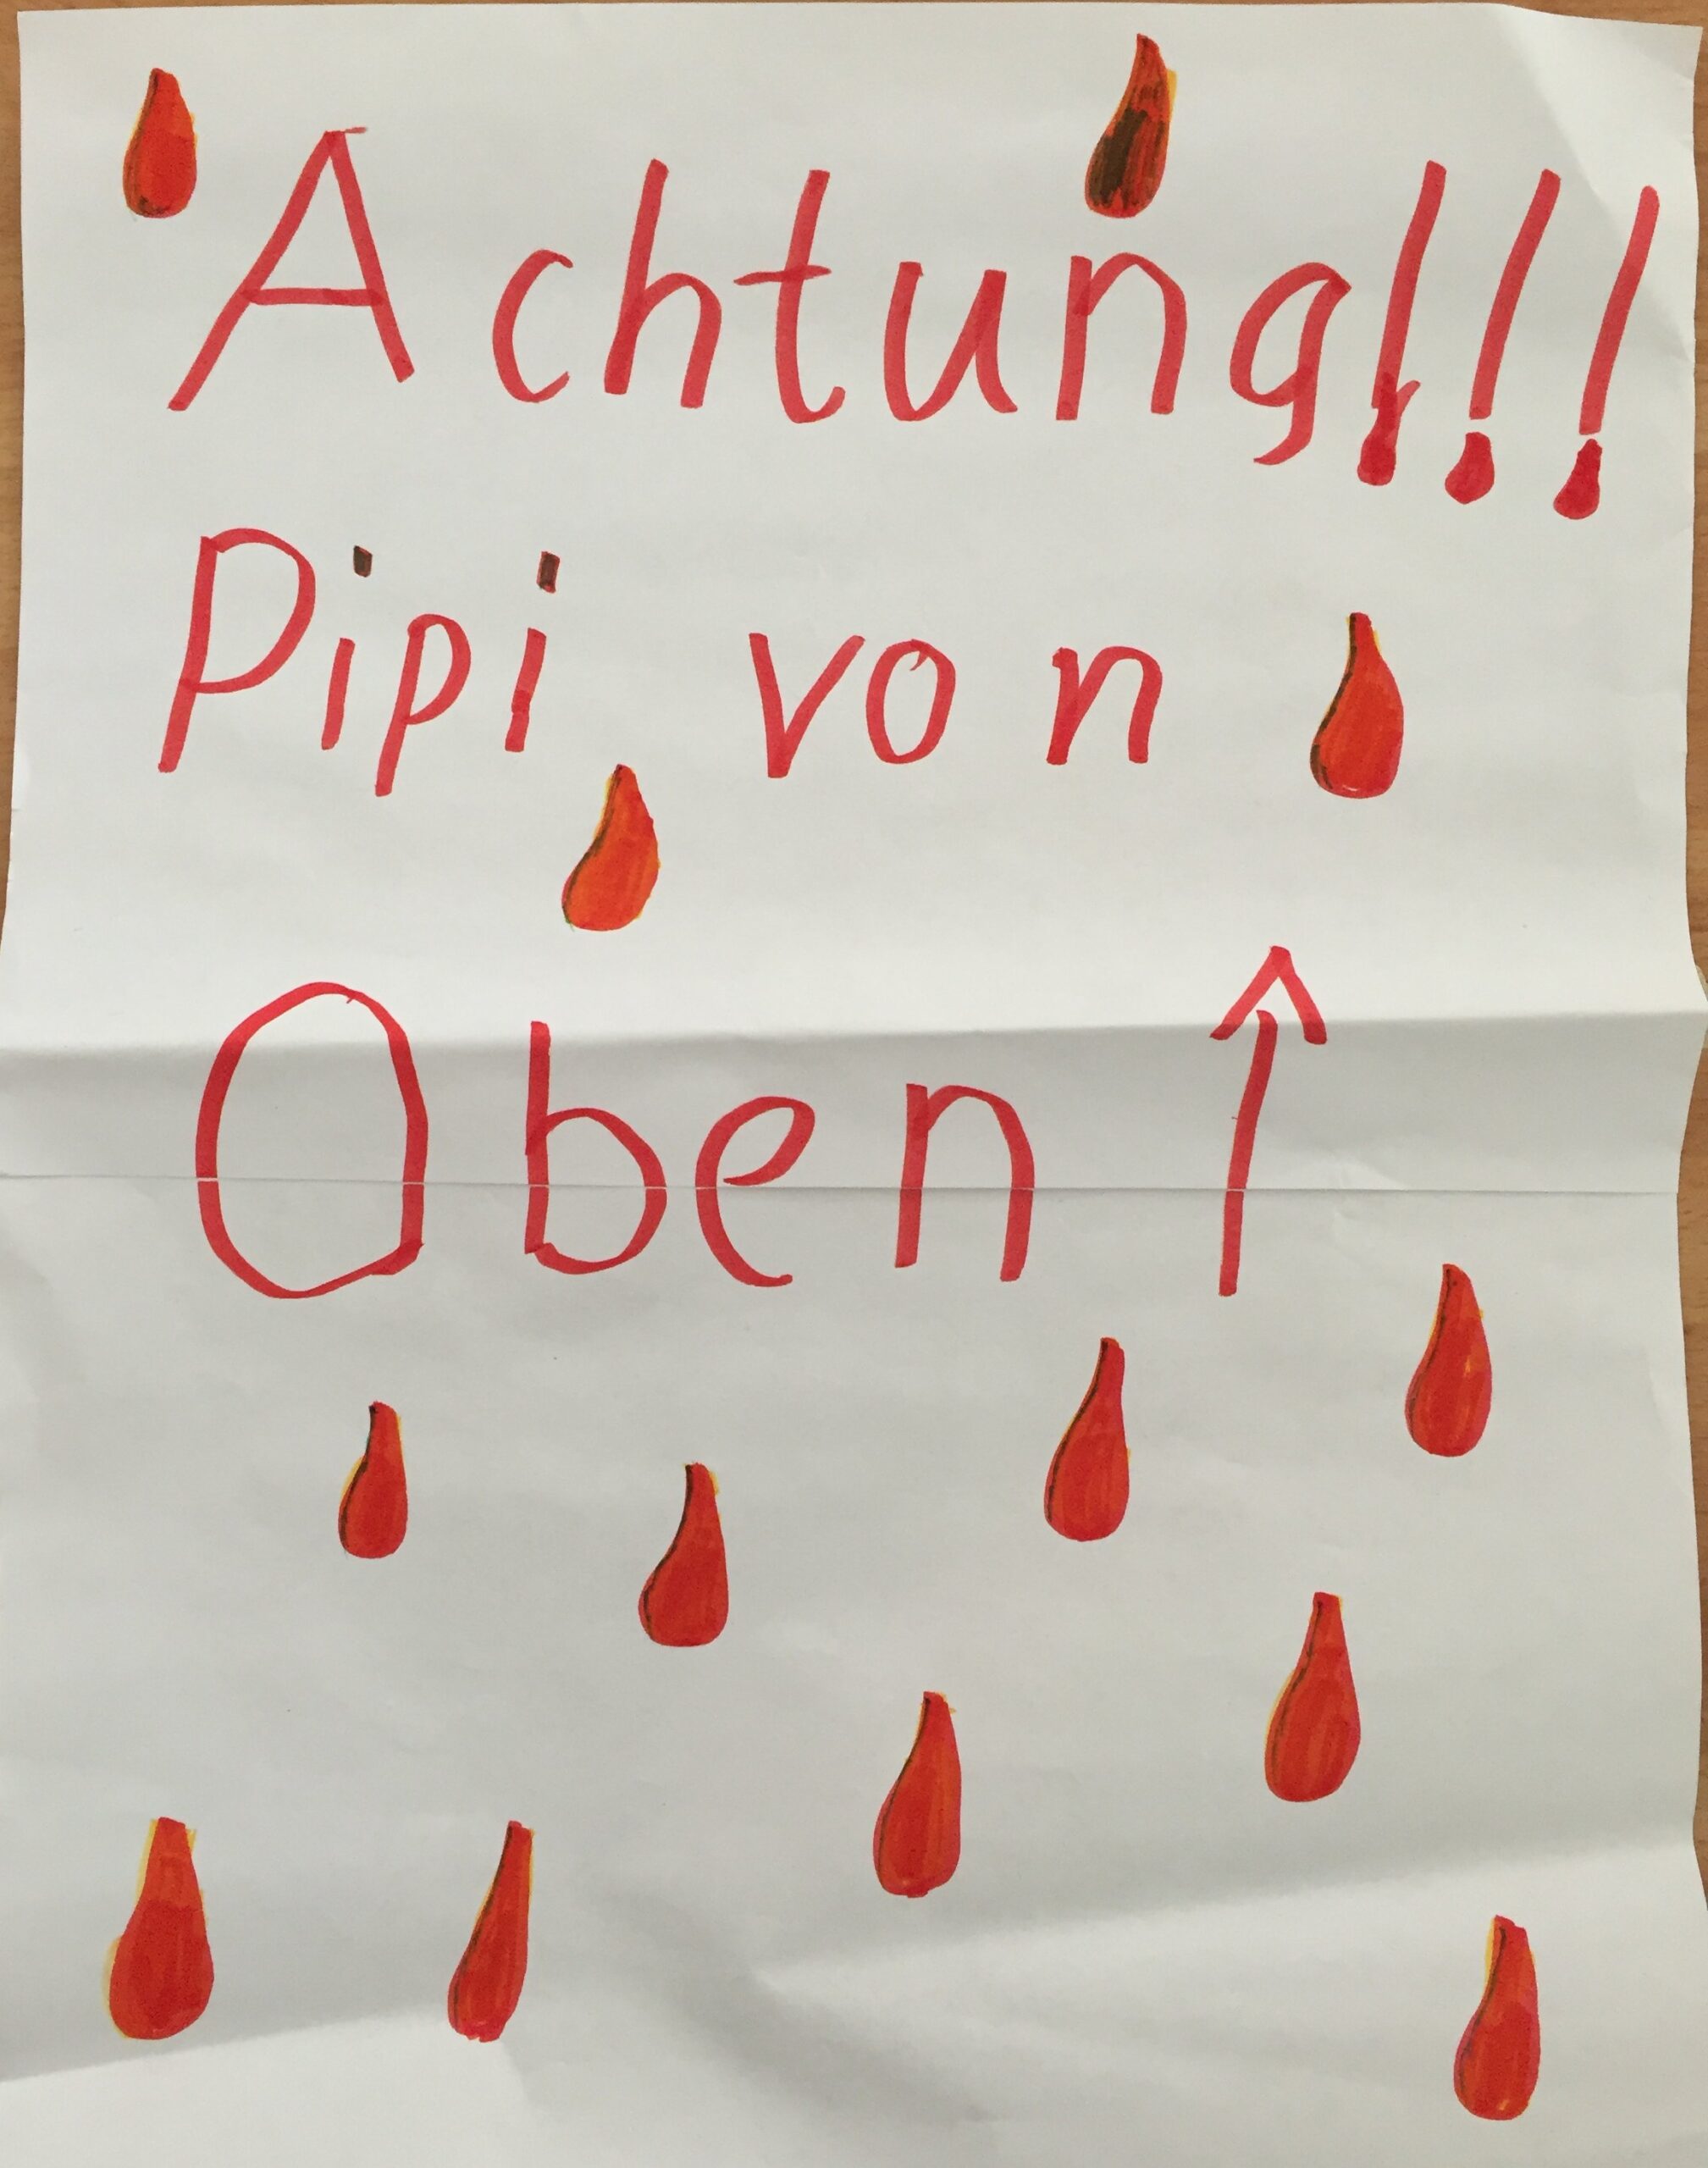 Achtung!!!
Pipi von
Oben ↑